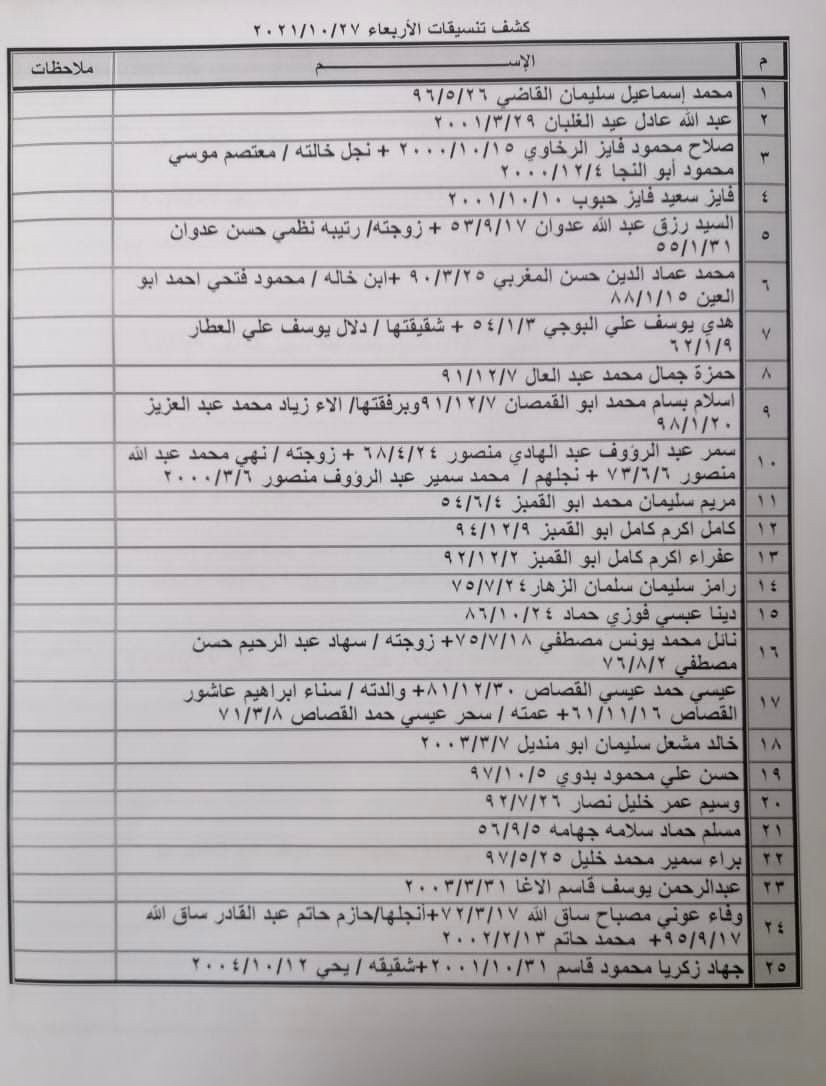 كشف تنسيقات الأربعاء ٢٠٢١/١٠/٢٧
م الإســـــــــــــم ملاحظات
١ محمد إسماعيل سليمان القاضي ٩٦/٥/٢٦
٢ عبد الله عادل عيد الغلبان ٢٠٠١/٣/٢٩
٣ صلاح محمود فايز الرخاوي ٢٠٠٠/١٠/١٥ + نجل خالته / معتصم موسي
محمود أبو النجا ٢٠٠٠/١٢/٤
٤ فايز سعيد فايز حبوب ٢٠٠١/١٠/١٠
٥ السيد رزق عبد الله عدوان ٥٣/٩/١٧ + زوجته/ رتيبه نظمي حسن عدوان
٥٥/١/٣١
٦ محمد عماد الدين حسن المغربي ٩٠/٣/٢٥ +ابن خاله / محمود فتحي احمد ابو
العين ٨٨/١/١٥
٧ هدي يوسف علي البوجي ٥٤/١/٣ + شقيقتها / دلال يوسف علي العطار
٦٢/١/٩
٨ حمزة جمال محمد عبد العال ٩١/١٢/٧
٩ اسلام بسام محمد ابو القمصان ٩١/١٢/٧وبرفقتها/ الاء زياد محمد عبد العزيز
٩٨/١/٢٠
١٠ سمر عبد الرؤوف عبد الهادي منصور ٦٨/٤/٢٤ + زوجته / نهي محمد عبد الله
منصور ٧٣/٦/٦ + نجلهم / محمد سمير عبد الرؤوف منصور ٢٠٠٠/٣/٦
١١ مريم سليمان محمد ابو القمبز ٥٤/٦/٤
١٢ كامل اكرم كامل ابو القمبز ٩٤/١٢/٩
١٣ عفراء اكرم كامل ابو القمبز ٩٢/١٢/٢
١٤ رامز سليمان سلمان الزهار٧٥/٧/٢٤
١٥ دينا عبسي فوزي حماد ٨٦/١٠/٢٤
١٦ نائل محمد يونس مصطفي ٧٥/٧/١٨+ زوجته / سهاد عبد الرحيم حسن
مصطفي ٧٦/٨/٢
١٧ عيسي حمد عيسي القصاص ٨١/١٢/٣٠+ والدته / سناء ابراهيم عاشور
القصاص ٦١/١١/١٦+ عمته / سحر عيسي حمد القصاص ٧١/٣/٨
١٨ خالد مشعل سليمان ابو منديل ٢٠٠٣/٣/٧
١٩ حسن علي محمود بدوي ٩٧/١٠/٥
٢٠ وسيم عمر خليل نصار ٩٢/٧/٢٦
٢١ مسلم حماد سلامه جهامه ٥٦/٩/٥
٢٢ براء سمير محمد خليل ٩٧/٥/٢٥
٢٣ عبدالرحمن يوسف قاسم الاغا ٢٠٠٣/٣/٣١
٢٤ وفاء عوني مصباح ساق الله ٧٢/٣/١٧+أنجلها/حازم حاتم عبد القادر ساق الله
٩٥/٩/١٧+ محمد حاتم ٢٠٠٢/٢/١٣
٢٥ جهاد زكريا محمود قاسم ٢٠٠١/١٠/٣١+شقيقه / يحي ٢٠٠٤/١٠/١٢